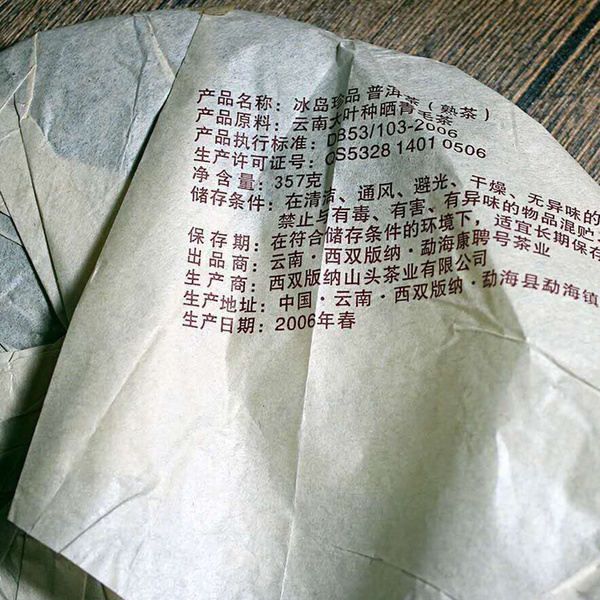 产品名称：冰岛珍品 普洱茶（熟茶）
产品原料：云南大叶种晒青毛茶
产品执行标准：DB53/103-2006
生产许可证号：QS5328 1401 0506
净含量：357克
储存条件：在清洁、通风、避光、干燥、无异味的
禁止与有毒、有害、有异味的物品混贮
保存期：在符合储存条件的环境下，适宜长期保存
出品商：云南·西双版纳·勐海康聘号茶业
生产商：西双版纳山头茶业有限公司
生产地址：中国·云南·西双版纳·勐海县勐海镇
生产日期：2006年春